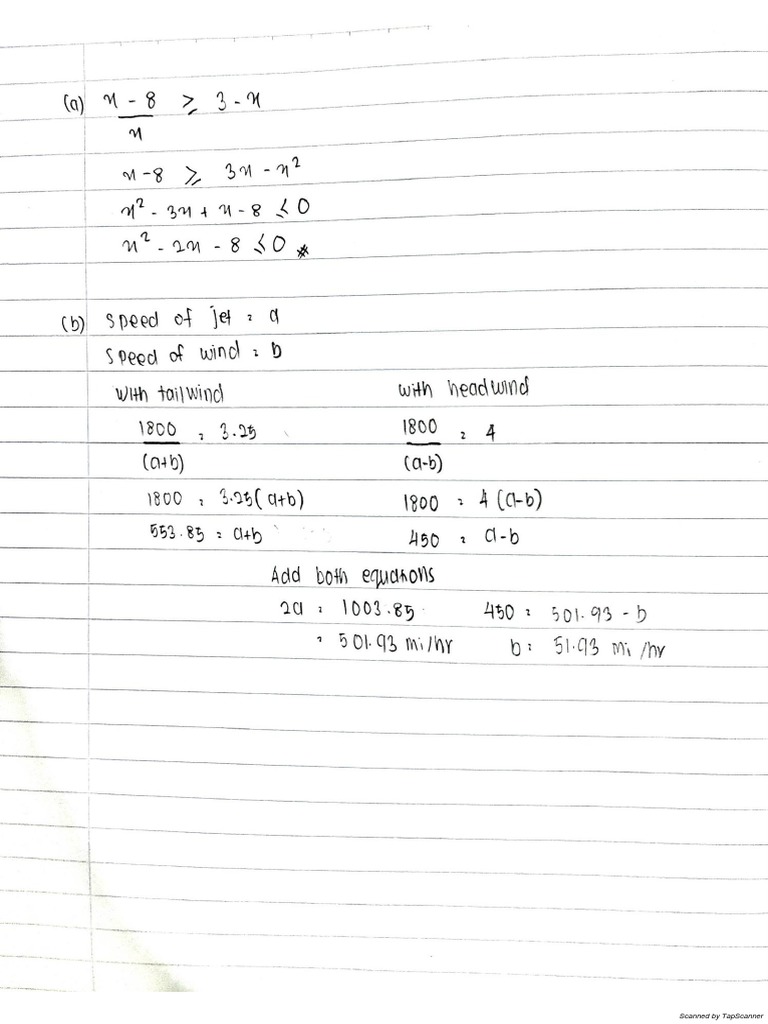 (a) x - 8 ≥ 3 - x
x
x - 8 ≥ 3x - x²
x² - 3x + x - 8 ≤ 0
x² - 2x - 8 ≤ 0 *
(b) speed of jet = a
speed of wind = b
with tailwind with headwind
1800 = 3.25 1800 = 4
(a+b) (a-b)
1800 = 3.25(a+b) 1800 = 4 (a-b)
553.85 = a+b 450 = a-b
Add both equations
2a = 1003.85 450 = 501.93 - b
= 501.93 mi/hr b = 51.93 mi/hr
Scanned by TapScanner